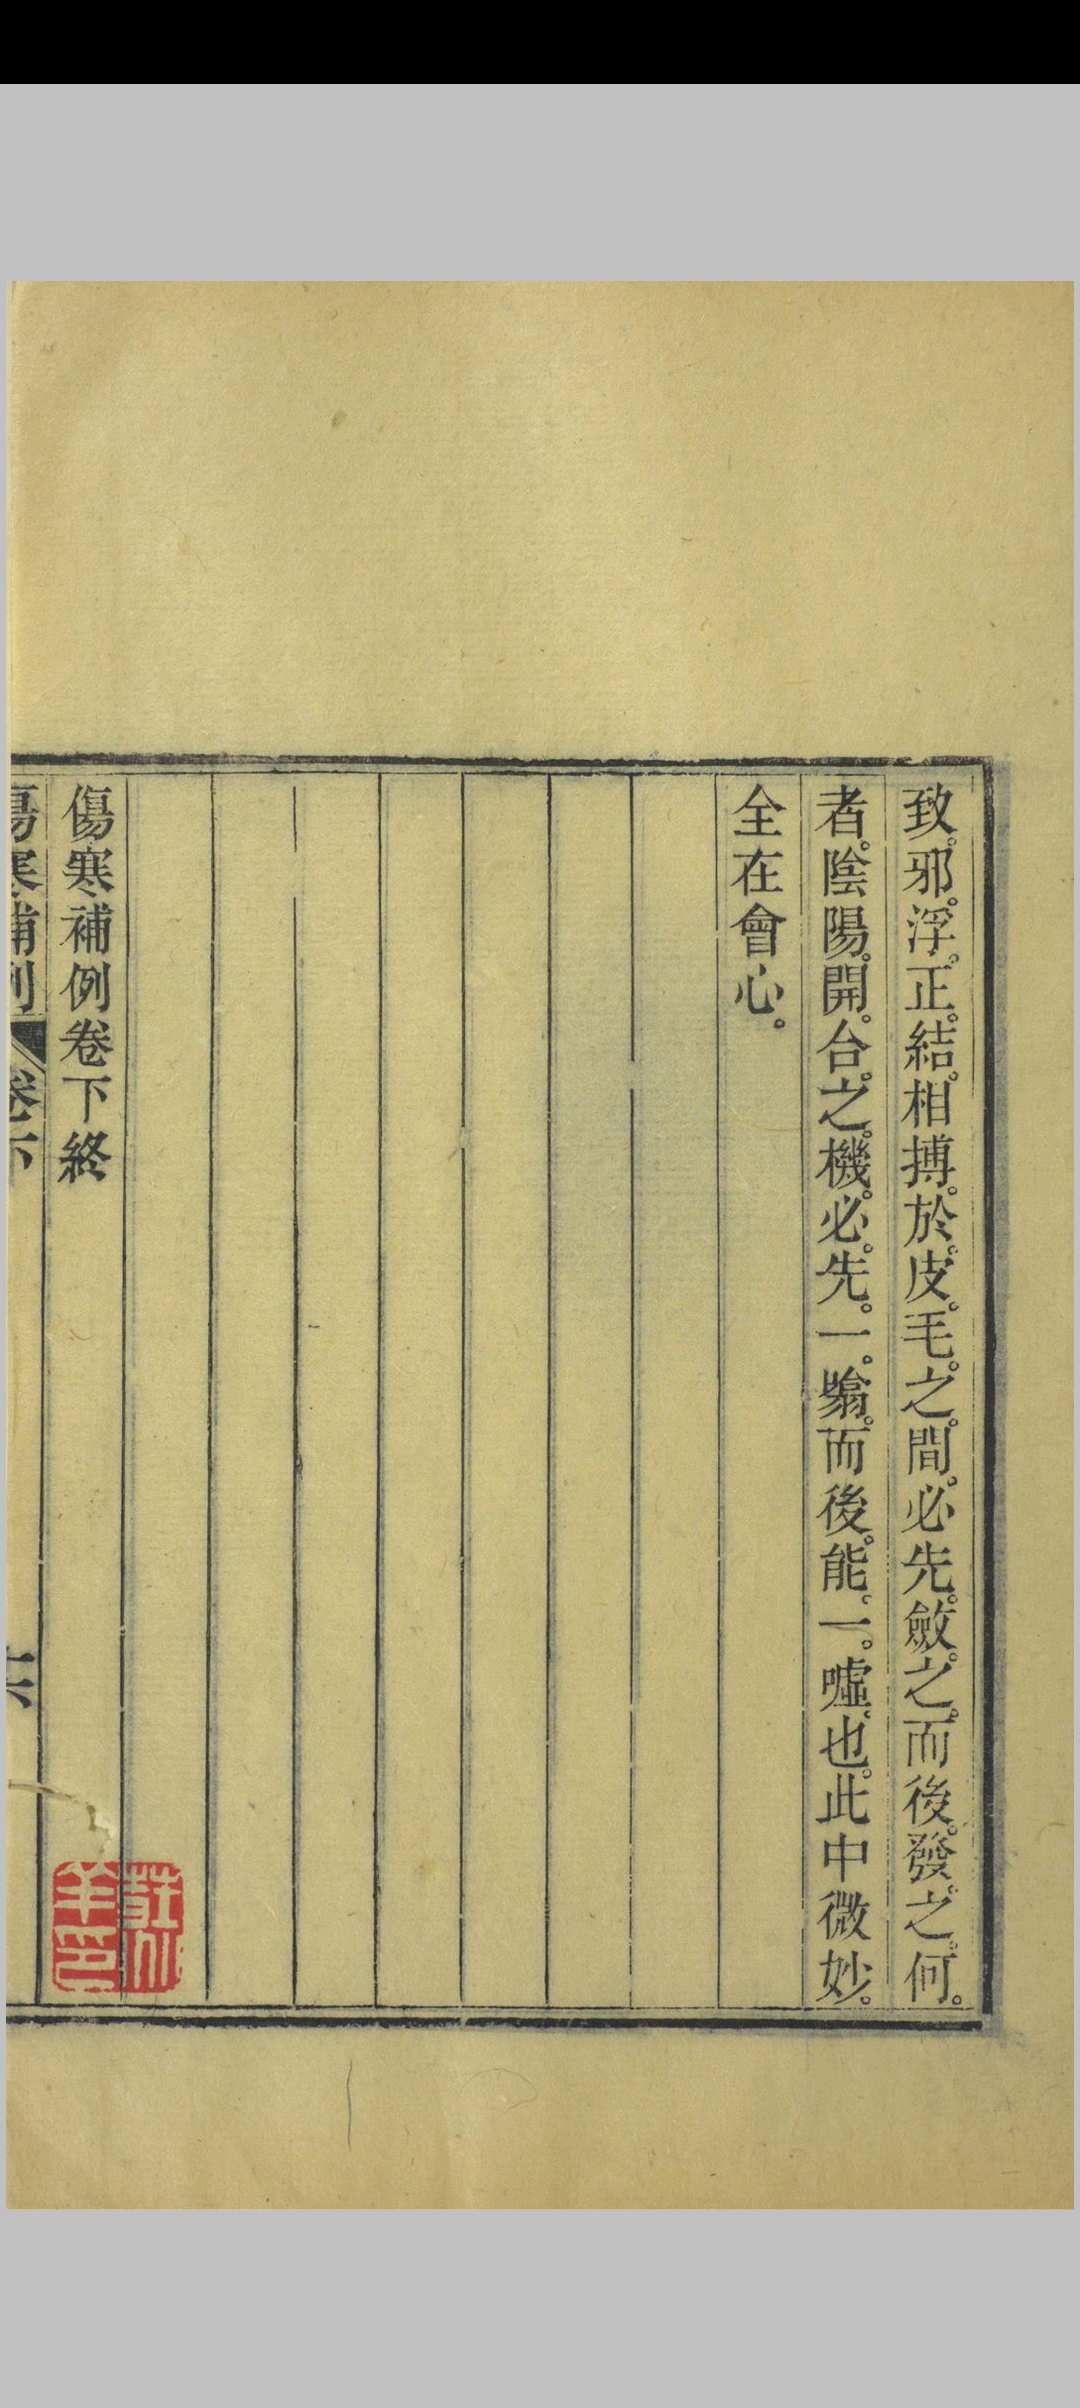 致邪浮正結相搏於皮毛之間必先斂之而後發之何
者陰陽開合之機必先一翕而後能一噓也此中微妙
全在會心
傷寒補例卷下終
傷寒補例
卷下
十六